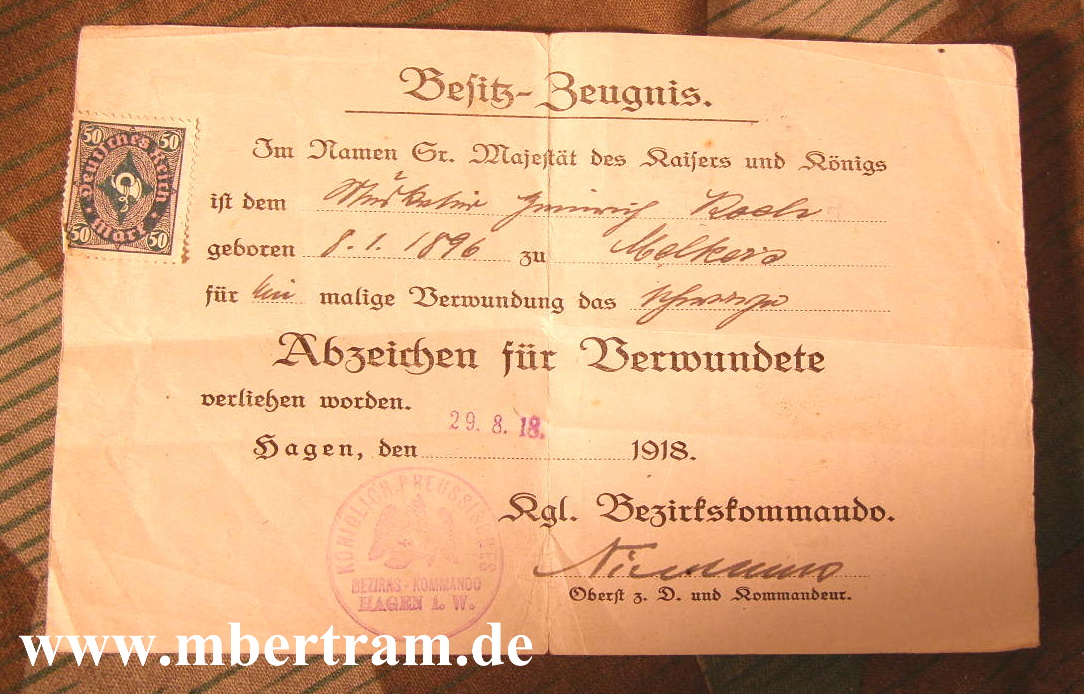 Besitz-Zeugnis.
50 50
Deutsches Reich
Mark
50 50
Im Namen Sr. Majestät des Kaisers und Königs
ist dem Musketier Heinrich Koch
geboren 8.1.1896 zu
für ein malige Verwundung das schwarze
Abzeichen für Verwundete
verliehen worden.
29. 8. 18.
Hagen, den 1918.
KÖNIGLICH PREUSSISCHES
BEZIRKS-KOMMANDO
HAGEN i. W.
Kgl. Bezirkskommando.
Oberst z. D. und Kommandeur.
www.mbertram.de